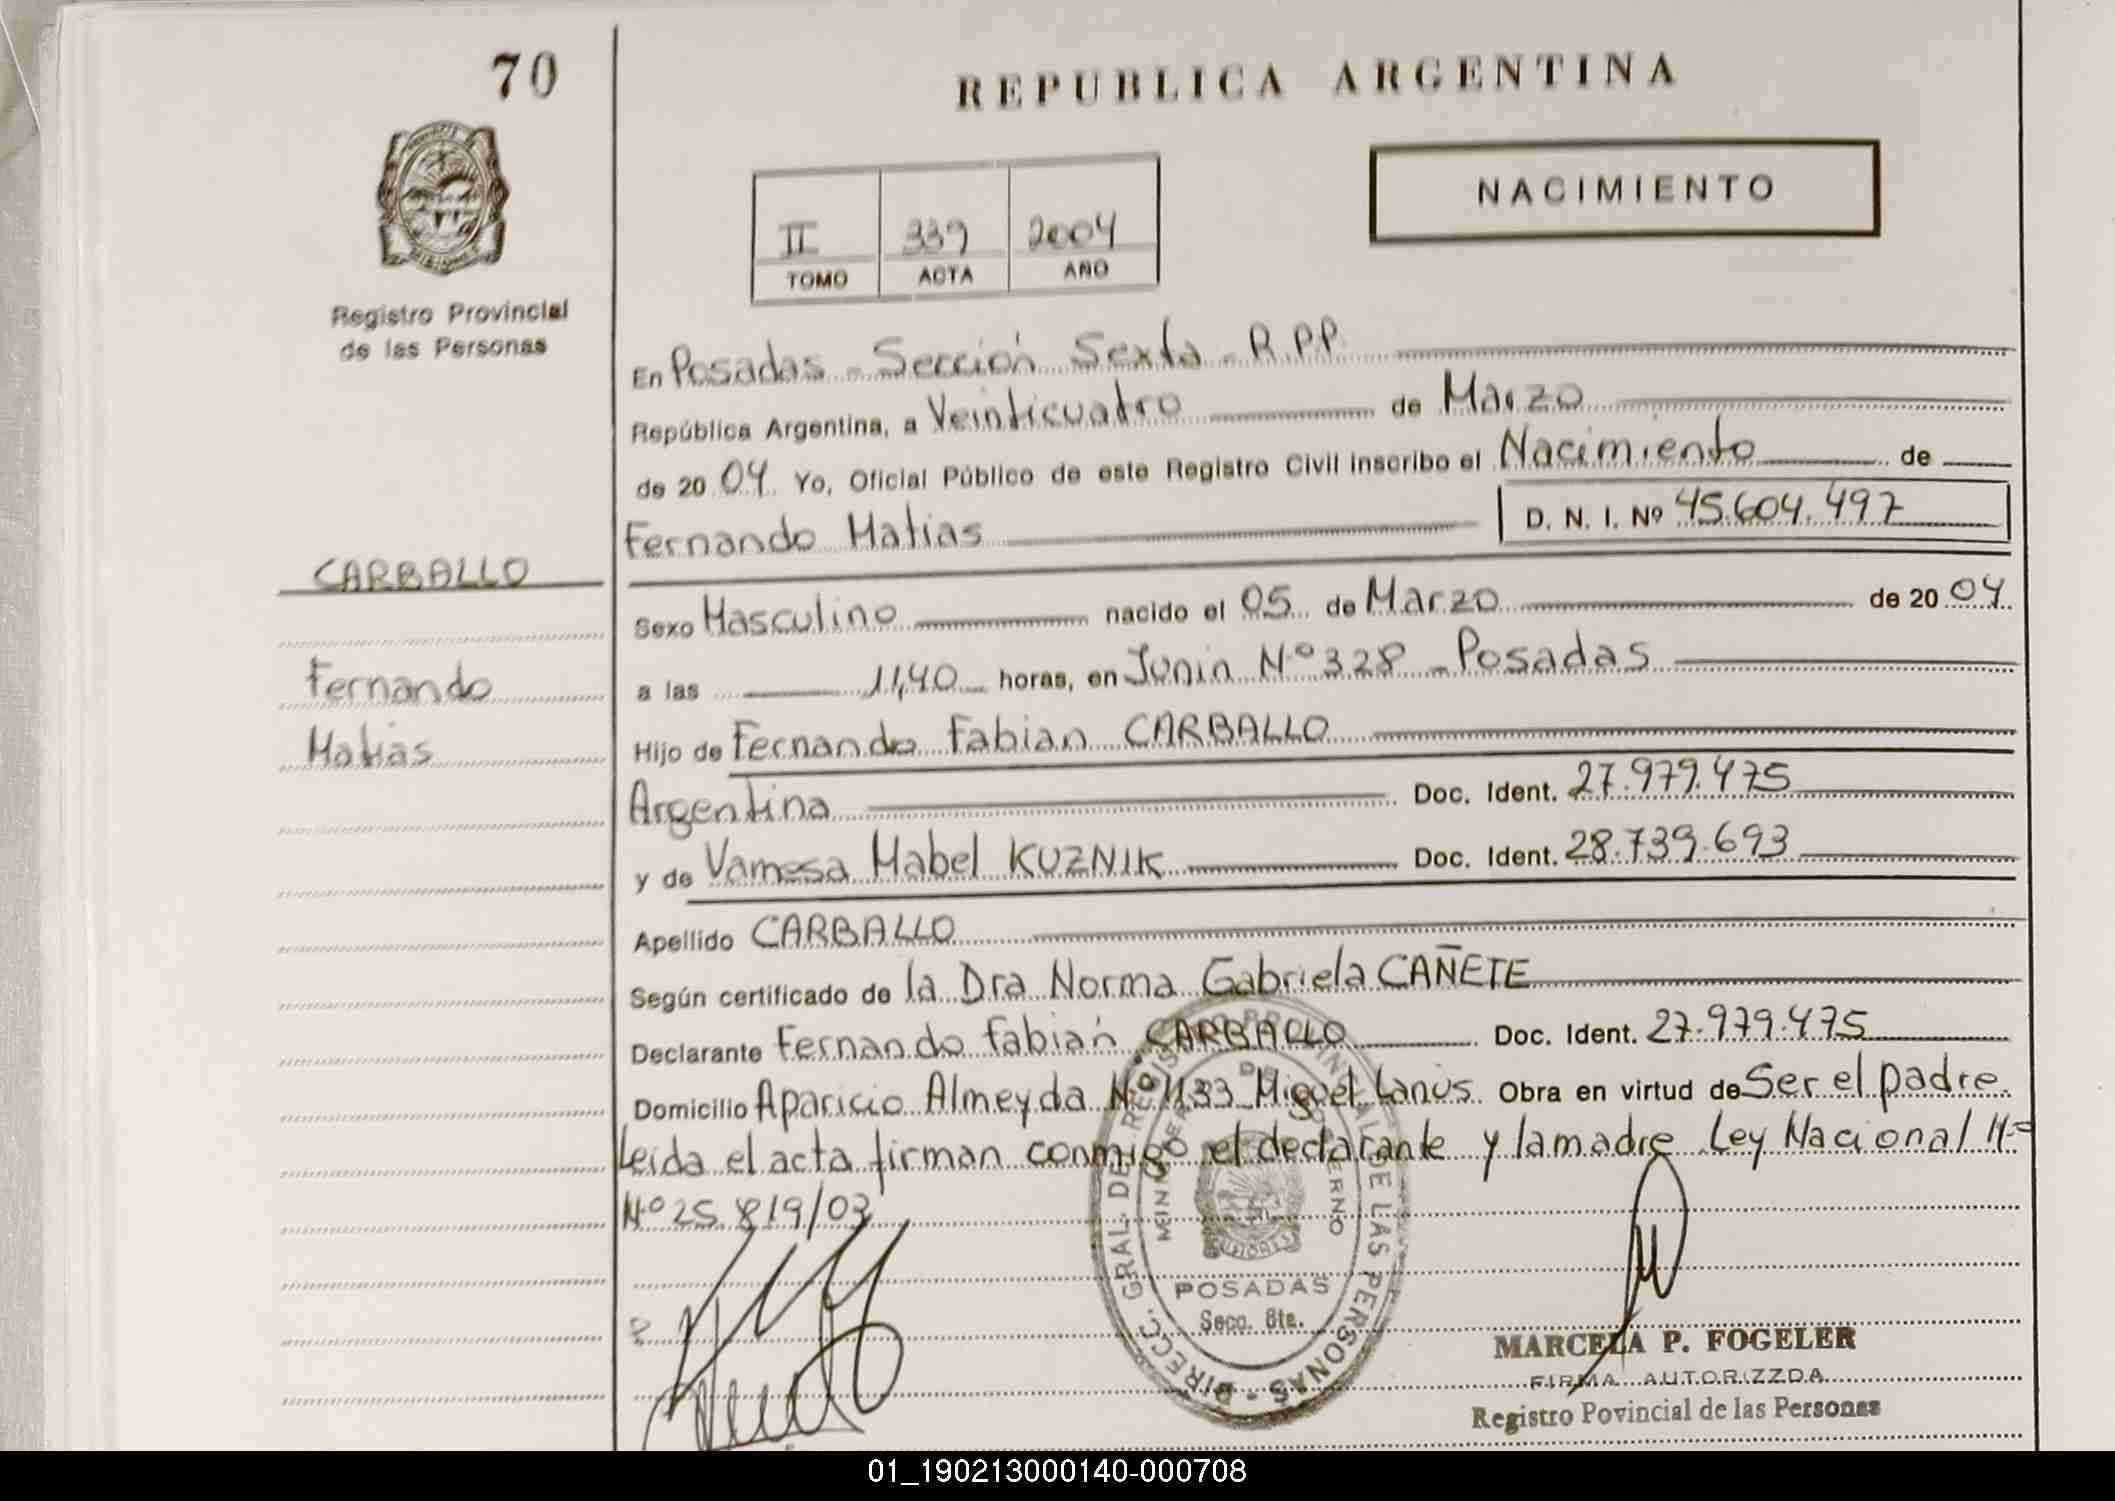 70
REPUBLICA ARGENTINA
NACIMIENTO
II 339 2004
TOMO ACTA AÑO
Registro Provincial
de las Personas
En Posadas - Sección Sexta - R.P.P.
República Argentina, a Veinticuatro de Marzo
de 2004 Yo, Oficial Público de este Registro Civil inscribo el Nacimiento de
Fernando Matias D. N. I. Nº 45.604.497
CARBALLO
Fernando
Matias
Sexo Masculino nacido el 05 de Marzo de 2004
a las 11,40 horas, en Junin Nº 328 - Posadas
Hijo de Fernando Fabian CARBALLO
Argentina Doc. Ident. 27.979.475
y de Vanessa Mabel KUZNIK Doc. Ident. 28.739.693
Apellido CARBALLO
Según certificado de la Dra Norma Gabriela CAÑETE
Declarante Fernando Fabián CARBALLO Doc. Ident. 27.979.475
Domicilio Aparicio Almeyda Nº 1133 Miguel Lanús Obra en virtud de Ser el padre.
Leida el acta firman conmigo el declarante y la madre Ley Nacional Nº
Nº 25.819/03
DIRECC. GRAL. DE REGISTRO PROVINCIAL DE LAS PERSONAS
MINISTERIO DE GOBIERNO
MISIONES
POSADAS
Secc. 6ta.
MARCELA P. FOGELER
FIRMA AUTORIZZDA
Registro Povincial de las Personas
01_190213000140-000708